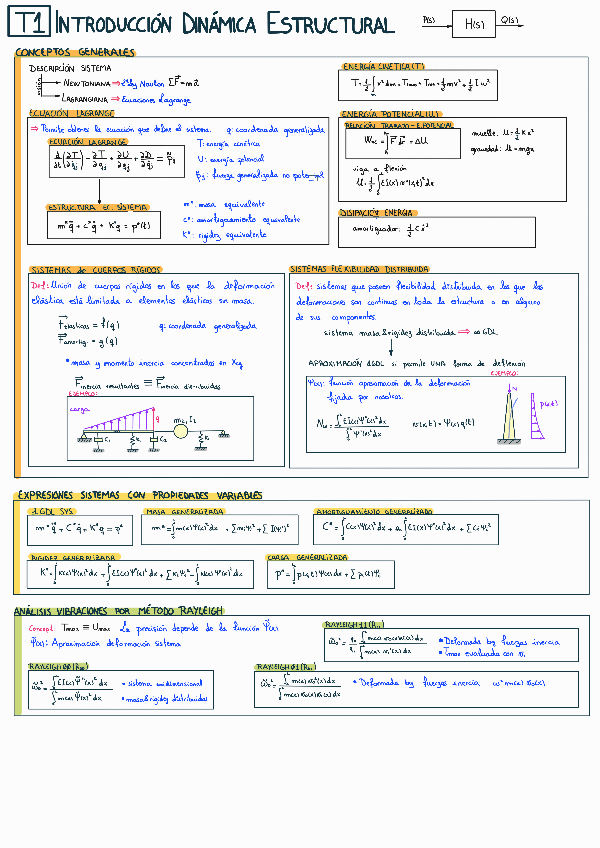 T1 INTRODUCCIÓN DINÁMICA ESTRUCTURAL
P(s) H(s) Q(s)
CONCEPTOS GENERALES
DESCRIPCIÓN SISTEMA
NEWTONIANA ⇒ 2ª ley Newton ΣF=m·a
LAGRANGIANA ⇒ Ecuaciones Lagrange
ENERGÍA CINÉTICA (T)
ECUACIÓN LAGRANGE
⇒ Permite obtener la ecuación que define el sistema. q: coordenada generalizada
ECUACIÓN LAGRANGE
T: energía cinética
U: energía potencial
pⱼ: fuerza generalizada no potencial
ESTRUCTURA EC. SISTEMA
m* q̈ + c* q̇ + K* q = p*(t)
m*: masa equivalente
c*: amortiguamiento equivalente
K*: rigidez equivalente
ENERGÍA POTENCIAL (U)
RELACIÓN TRABAJO - E. POTENCIAL
muelle: U = ½ K x²
gravedad: U = mgz
viga a flexión
U = ½ ∫ EI(x) v''(x,t)² dx
DISIPACIÓN ENERGÍA
amortiguador: ½ C ẋ²
SISTEMAS de CUERPOS RÍGIDOS
Def: Unión de cuerpos rígidos en los que la deformación
elástica está limitada a elementos elásticos sin masa.
F elásticas = f(q) q: coordenada generalizada
F amortig. = g(q̇)
• masa y momento inercia concentrados en Xcg
F inercia resultantes ≡ F inercia distribuidas
EJEMPLO:
carga
q
m₂, I₂
C₁ K₁ C₂ K₂
SISTEMAS FLEXIBILIDAD DISTRIBUIDA
Def: sistemas que poseen flexibilidad distribuida en los que las
deformaciones son continuas en toda la estructura o en alguno
de sus componentes.
sistema masa & rigidez distribuida ⇒ ∞ GDL
APROXIMACIÓN 1GDL si permite UNA forma de deflexión
EJEMPLO:
Ψ(x): función aproximación de la deformación
fijada por nosotros.
v(x,t) = Ψ(x) q(t)
N
p(x,t)
EXPRESIONES SISTEMAS CON PROPIEDADES VARIABLES
1 GDL SYS.
m* q̈ + C* q̇ + K* q = p*
MASA GENERALIZADA
m* = ∫ m(x) Ψ(x)² dx + Σ mᵢ Ψᵢ² + Σ Iᵢ(Ψᵢ')²
AMORTIGUAMIENTO GENERALIZADO
C* = ∫ C(x) Ψ(x)² dx + a₁ ∫ EI(x) Ψ''(x)² dx + Σ Cᵢ Ψᵢ²
RIGIDEZ GENERALIZADA
K* = ∫ K(x) Ψ(x)² dx + ∫ EI(x) Ψ''(x)² dx + Σ Kᵢ Ψᵢ² - ∫ N(x) Ψ'(x)² dx
CARGA GENERALIZADA
p* = ∫ p(x,t) Ψ(x) dx + Σ pᵢ(t) Ψᵢ
ANÁLISIS VIBRACIONES POR MÉTODO RAYLEIGH
Concept. Tmax ≡ Umax La precisión depende de la función Ψ(x)
Ψ(x): Aproximación deformación sistema
RAYLEIGH 00 (R₀₀)
• sistema unidimensional
• masa & rigidez distribuidas
RAYLEIGH 11 (R₁₁)
• Deformada by fuerzas inercia
• Tmax evaluada con v₁
RAYLEIGH 01 (R₀₁)
• Deformada by fuerzas inercia ω² m(x) v₀(x)